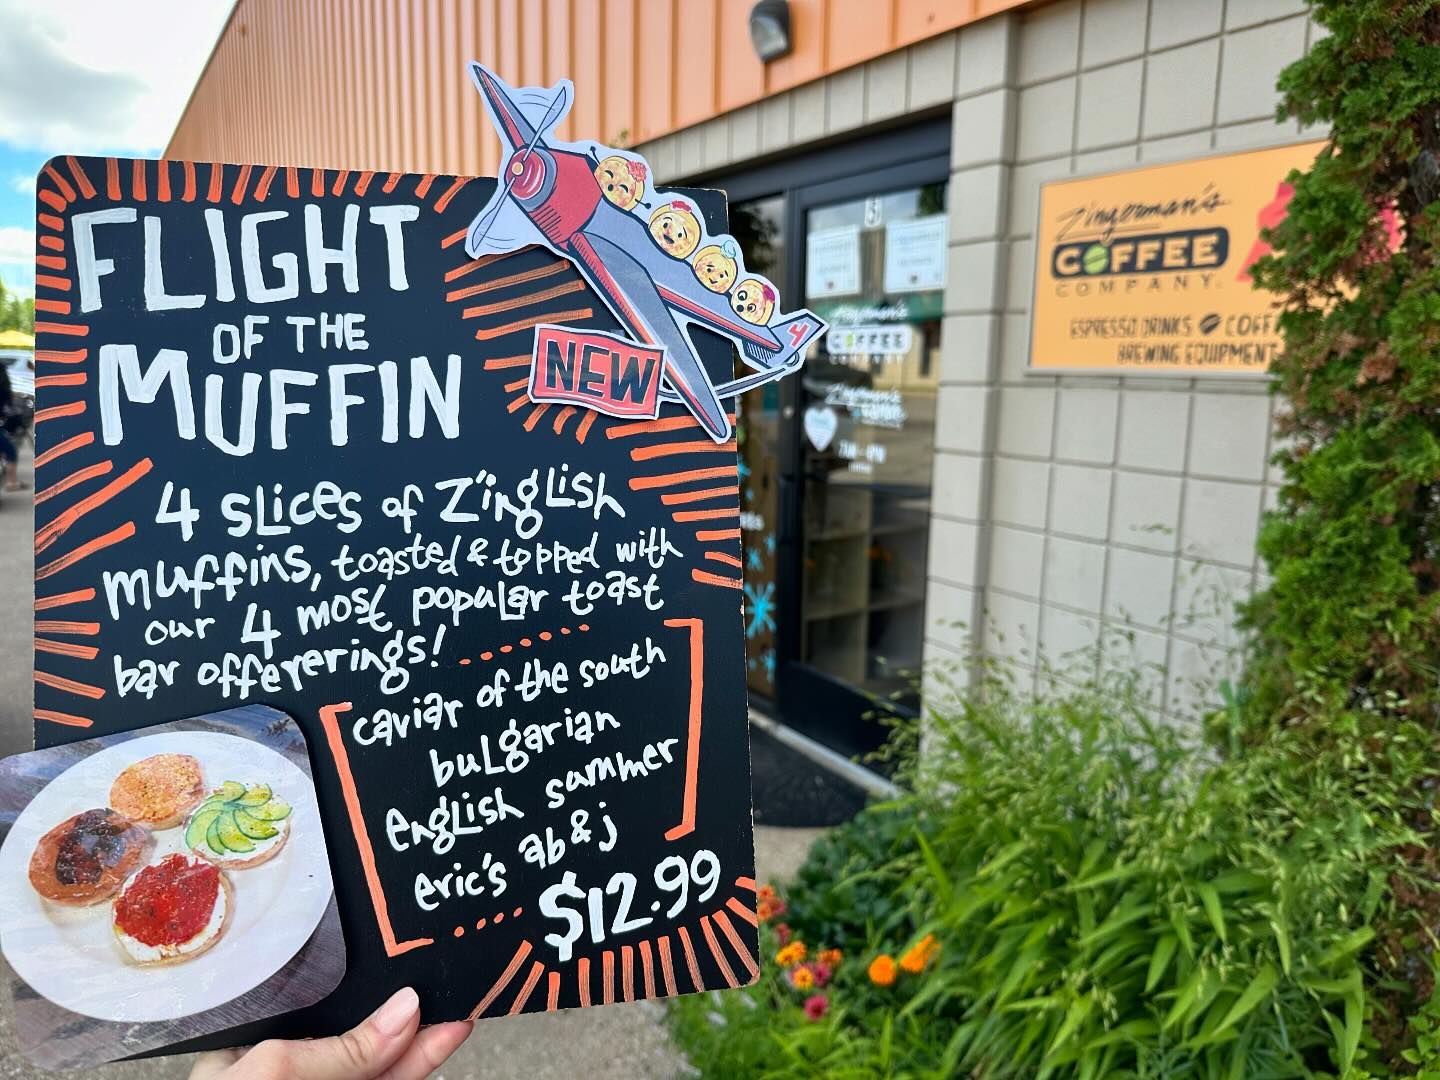 FLIGHT
OF THE
MUFFIN
NEW
4
4 slices of Z'inglish
muffins, toasted & topped with
our 4 most popular toast
bar offererings!
caviar of the south
bulgarian
english summer
eric's ab & j
$12.99
Zingerman's
COFFEE
COMPANY
ESPRESSO DRINKS
BREWING EQUIPMENT
3
Zingerman's
COFFEE